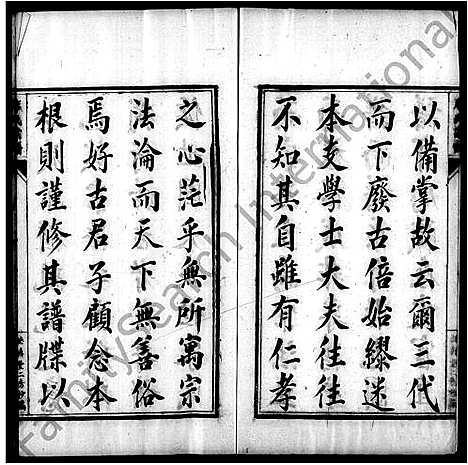 以備掌故云爾三代
而下廢古倍始繆迷
本支學士大夫往往
不知其自雖有仁孝
之心茫乎無所寓宗
法淪而天下無善俗
焉好古君子顧念本
根則謹修其譜牒以
FamilySearch International